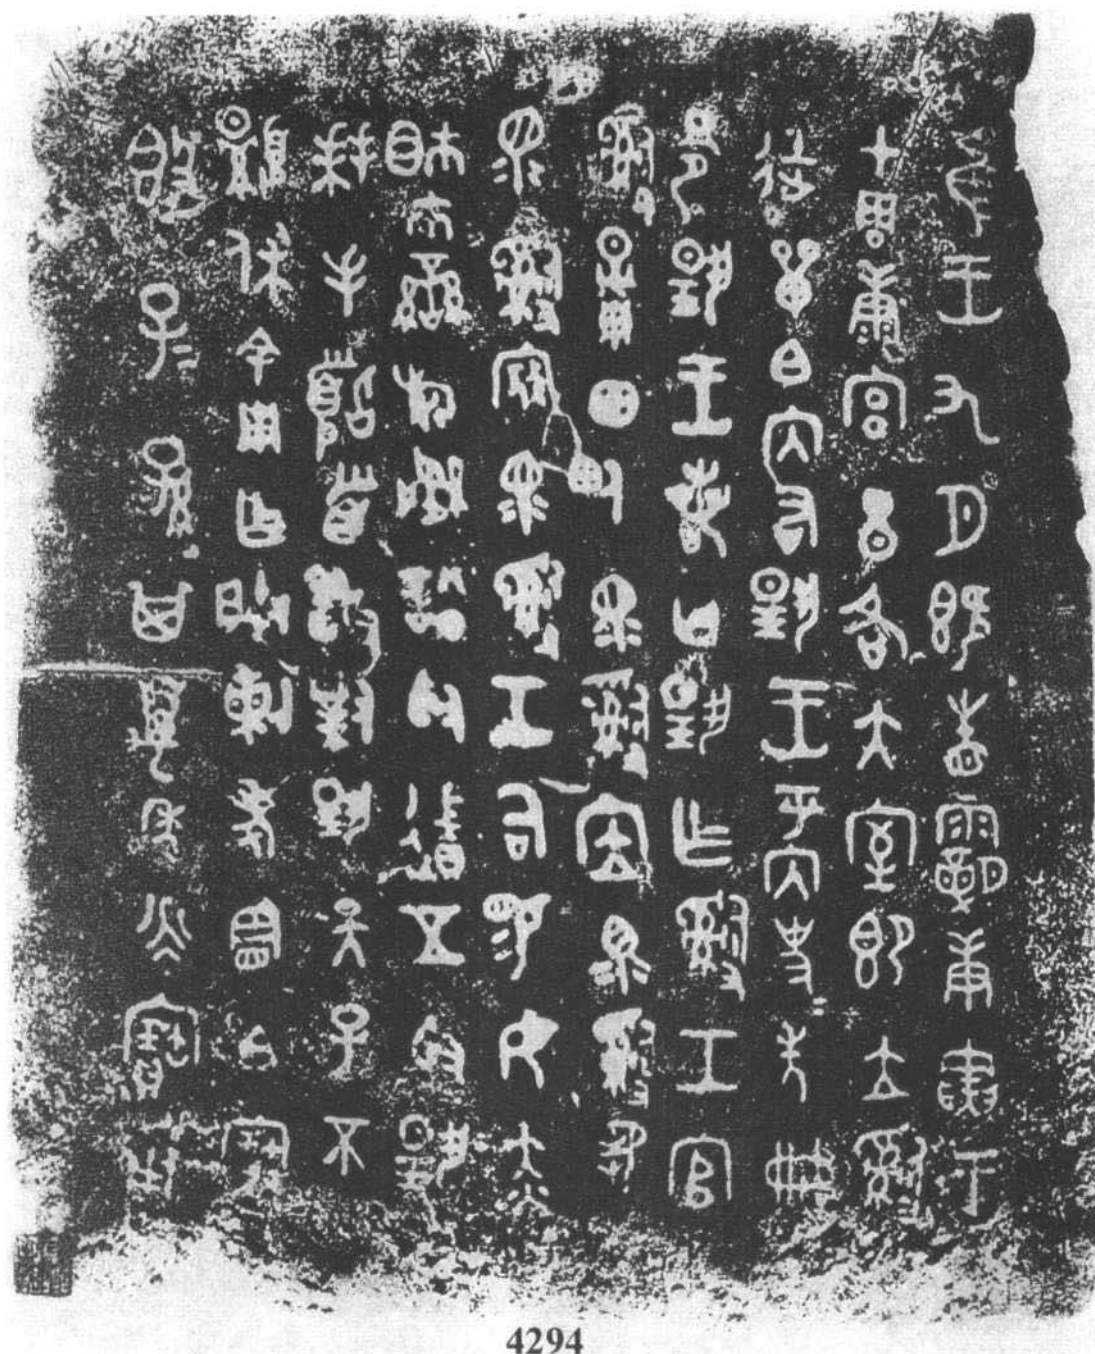 隹王九月既眚霸庚寅王
才周康宮旦各大室即立𤔲
徒單白內右揚王乎內史史先冊
令揚王若曰揚乍𤔲工官
𤔲量田甸眔𤔲㡴眔𤔲芻
眔𤔲寇眔𤔲工司易女赤
𢂇巿䜌旂訊訟取𧵩五寽揚
拜手𩒨首敢對揚天子不
顯休余用乍朕剌考憲白寶
簋子子孫孫其萬年永寶用
4294